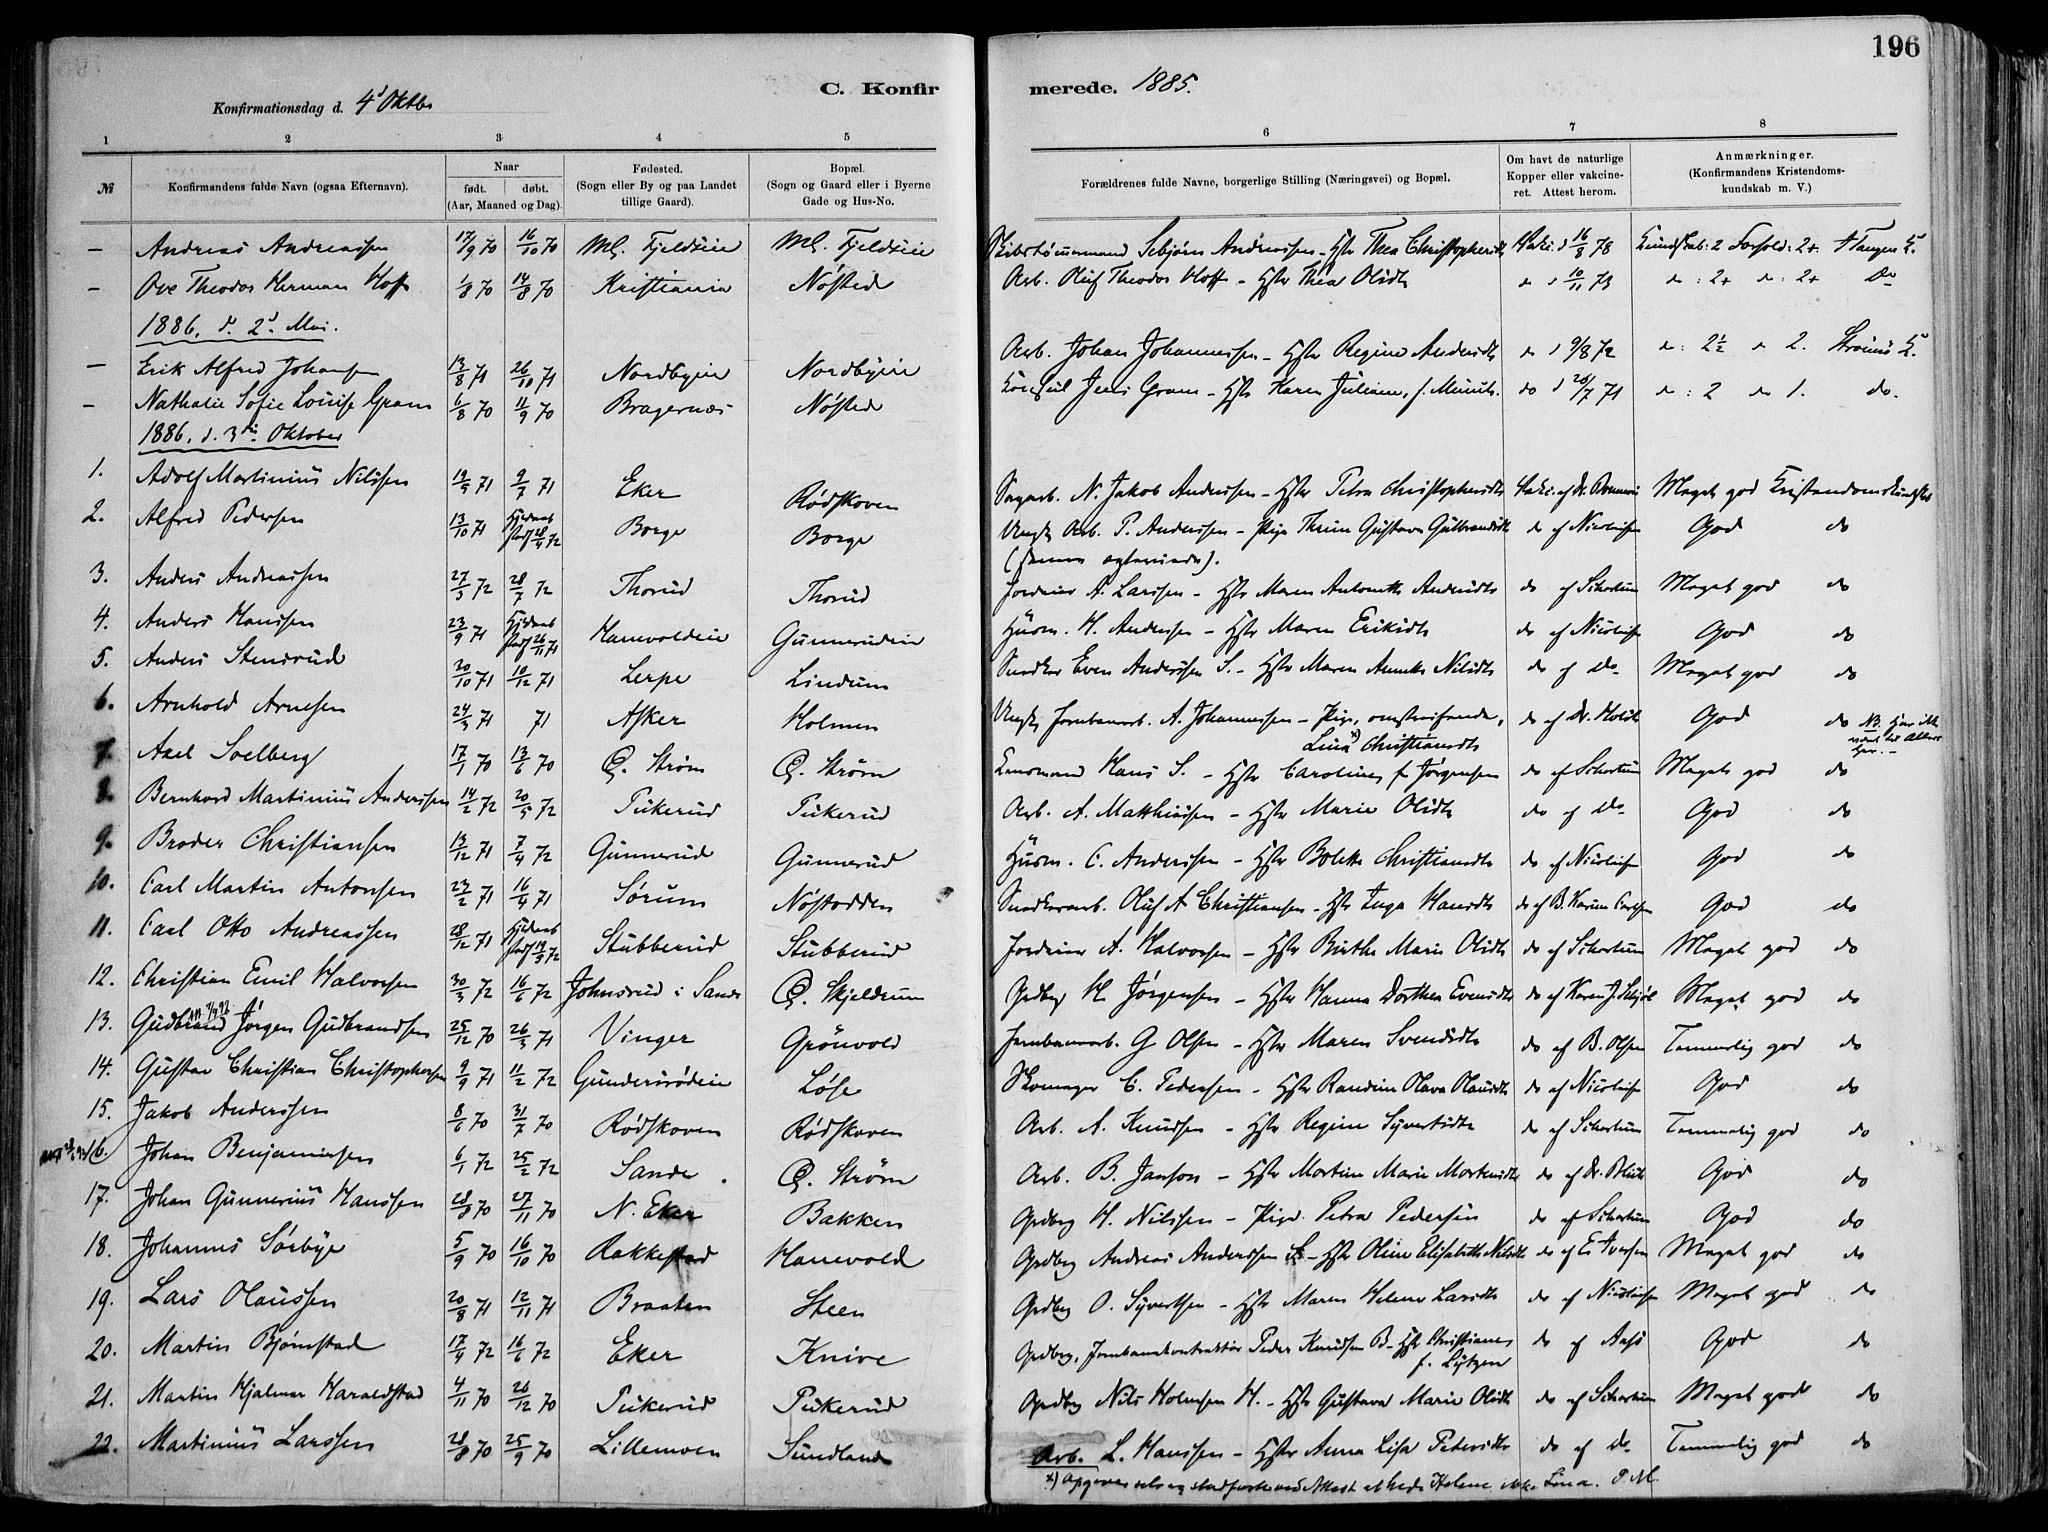 196
Konfirmationsdag d. 4d Oktbr C. Konfirmerede. 1885.
1 2 3 4 5 6 7 8
№ Konfirmandens fulde Navn (ogsaa Efternavn). Naar født. døbt. (Aar, Maaned og Dag). Fødested. (Sogn eller By og paa Landet tillige Gaard). Bopæl. (Sogn og Gaard eller i Byerne Gade og Hus-No. Forældrenes fulde Navne, borgerlige Stilling (Næringsvei) og Bopæl. Om havt de naturlige Kopper eller vakcineret. Attest herom. Anmærkninger. (Konfirmandens Kristendomskundskab m. V.)
– Andreas Andreassen 17/9 70 16/10 70 Fjeldseie Fjeldseie Andreassen – Hstr Thea Christophersdtr 16/9 78 Kundskab: 2 Forhold: 2+ Tangen K.
– Ove Theodor Herman Hoff 1/8 70 14/8 70 Kristiania Nøsted Arb. Oluf Theodor Hoff – Hstr Thea Olsdtr 10/11 73 : 2+ : 2+ Do
1886. d. 2d Mai.
– Erik Alfred Johansen 13/8 71 26/10 71 Nordbyeie Nordbyeie Arb. Johan Johannessen – Hstr Regine Andersdtr 9/8 72 : 2½ 2. Strømsø K.
– Nathalie Sofie Louise Gram 6/8 70 11/9 70 Bragernæs Nøsted Konsul Jens Gram – Hstr Karen Juliane, f. do d 20/7 71 : 2 1. do.
1886. d. 3die Oktober
1. Adolf Martinius Nilssen 19/5 71 9/7 71 Eker Rødskoven Sagarb. N. Jakob Anderssen – Hstr Petra Christophersdtr Vakc. af Dr. Meget god Kristendomskundskab
2. Alfred Pedersen 13/10 71 Hjemdøbt stadf 28/4 72 Borge Borge Ungk. Arb. P. Anderssen – Pige Thrine Gustava Gulbrandsdtr do af Nicolaisen God do
3. Anders Andreassen 27/3 72 28/7 72 Thorud Thorud Jordeier A. Larssen – Hstr Maren Antonette Andersdtr do af Schartum Meget god do
4. Anders Hanssen 23/9 71 Hjemdøbt stadf 26/11 71 Hanevoldeie Gunnerudeie Husm. H. Andersen – Hstr Maren Eriksdtr do af Nicolaisen God do
5. Anders Stensrud 20/10 71 10/12 71 Lerpe Lindum Snedker Even Anderssen S. – Hstr Maren Annette Nilsdtr do af do Meget god do
6. Arnhold Arnesen 24/3 71 71 Asker Holmen Ungk. Jernbanearb. A. Johannessen – Pige, omstreifende, do af Dr. Holst God do NB. har ikke
Lina x) Christiansdtr
7. Axel Solberg 17/1 70 13/6 70 Ø. Strøm Ø. Strøm Lensmand Hans S. – Hstr Caroline f. Jørgensen do af Schartum Meget god do
8. Bernhard Martinius Anderssen 14/2 72 20/5 72 Pukerud Pukerud Arb. A. Matthiassen – Hstr Marie Olsdtr do af do God do
9. Broder Christiansen 13/12 71 7/4 72 Gunnerud Gunnerud Husm. C. Anderssen – Hstr Bolette Christiansdtr do af Nicolaisen God do
10. Carl Martin Antonsen 27/2 71 16/4 71 Sørum Nøstodden Snedkerarb. Oluf A Christiansen – Hstr Inga Hansdtr do af B. Karine Carlsen God do
11. Carl Otto Andreassen 28/12 71 Hjemdøbt stadf 19/5 72 Stubberud Stubberud Jordeier A. Halvorsen – Hstr Birthe Marie Olsdtr do af Schartum Meget god do
12. Christian Emil Halvorsen 30/3 72 16/6 72 Johnsrud i Sande Ø. Skjeldrum Grdbrg H. Jørgensen – Hstr Hanna Dorthea Evensdtr do af Karen J. Meget god do
13. Gudbrand Jørgen Gudbrandsen 25/12 70 26/3 71 Vinger Grönvold Jernbanearb. G Olsen – Hstr Maren Svendsdtr do af B. Olsen Temmelig god do
14. Gustav Christian Christophersen 9/9 71 11/2 72 Gundersrødeie Løse Skomager C. Pedersen – Hstr Randine Olava Olausdtr do af Nicolaisen God do
15. Jakob Anderssen 8/6 70 31/7 70 Rødskoven Rødskoven Arb. A. Knudsen – Hstr Regine Syvertsdtr do af Schartum Temmelig god do
16. Johan Benjaminsen 6/1 72 25/2 72 Sande Ø. Strøm Arb. B. Janson – Hstr Martine Marie Mortensdtr do af Dr. God do
17. Johan Gunnerius Hanssen 28/8 70 27/11 70 N. Eker Bakken Grdbrg H. Nilssen – Pige Petra Pedersen do af Schartum God do
18. Johannes Sörbye 5/9 70 16/10 70 Rakkestad Hanevold Grdbrg Andreas Anderssen S – Hstr Oline Elisabeth Nilsdtr do af E. Iversen Meget god do
19. Lars Olaussen 20/8 71 12/11 71 Braaten Steen Grdbrg O. Syvertsen – Hstr Maren Helene Larsdtr do af Nicolaisen Meget god do
20. Martin Bjørnstad 17/4 72 16/6 72 Eker Knive Grdbrg, Jernbanekontraktør Peder Knudsen B – Hstr Christiane do af Aass God do
f. Lÿtzen
21. Martin Hjalmar Haraldstad 4/11 70 26/12 70 Pukerud Pukerud Grdbrg Nils Holmsen H. – Hstr Gustava Marie Olsdtr do af Schartum Meget god do
22. Martinius Larssen 28/8 70 25/9 70 Lillemoen Sundland Arb. L. Hanssen – Hstr Anna Lisa Pedersdtr do af do Temmelig god do
x) Opgives selv og ved Attest at hede Helene ikke Lina. P. M.